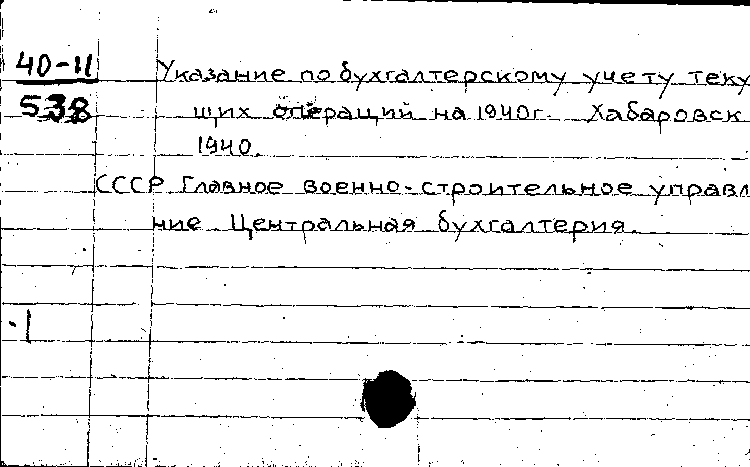 40-11
538
Указание по бухгалтерскому учету теку
щих операций на 1940г. Хабаровск
1940.
СССР Главное военно-строительное управл
ние Центральная бухгалтерия.